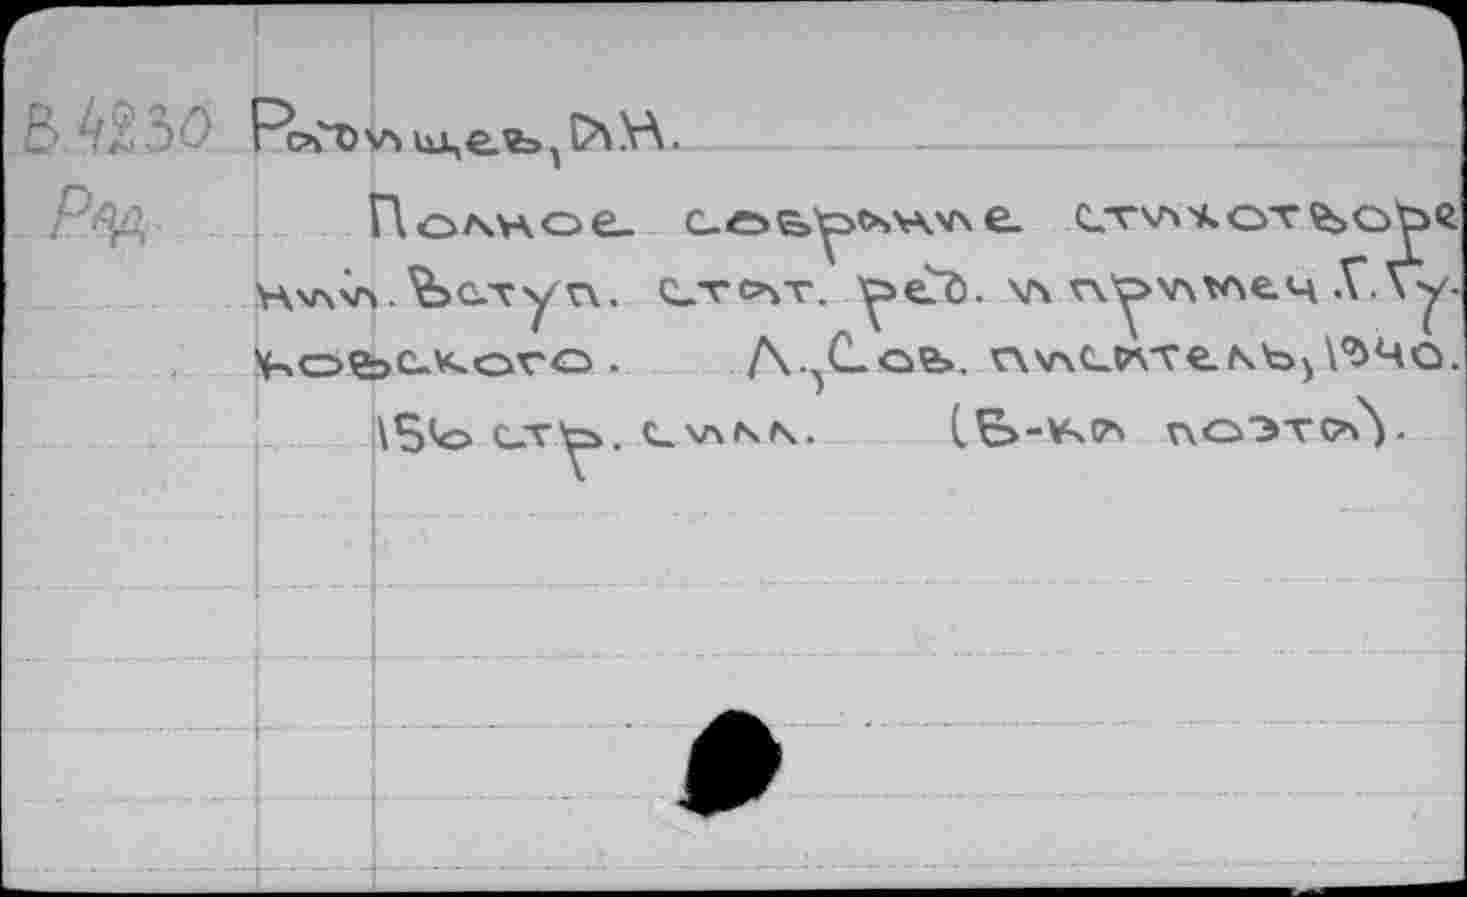 В 4230 Радищев, А.Н.
Рад Полное собрание стихотворе
ний. Вступ. стат. ред. и примеч. Г. Гу-
ковского. Л., Сов. писатель, 1940.
стр. с илл. (Б-ка поэта).